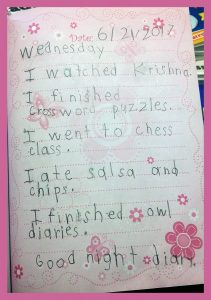 Date: 6/21/2017
Wednesday
I watched Krishna.
I finished
Crossword puzzles.
I went to chess
class.
I ate salsa and
chips.
I finished owl
diaries.
Good night diary.